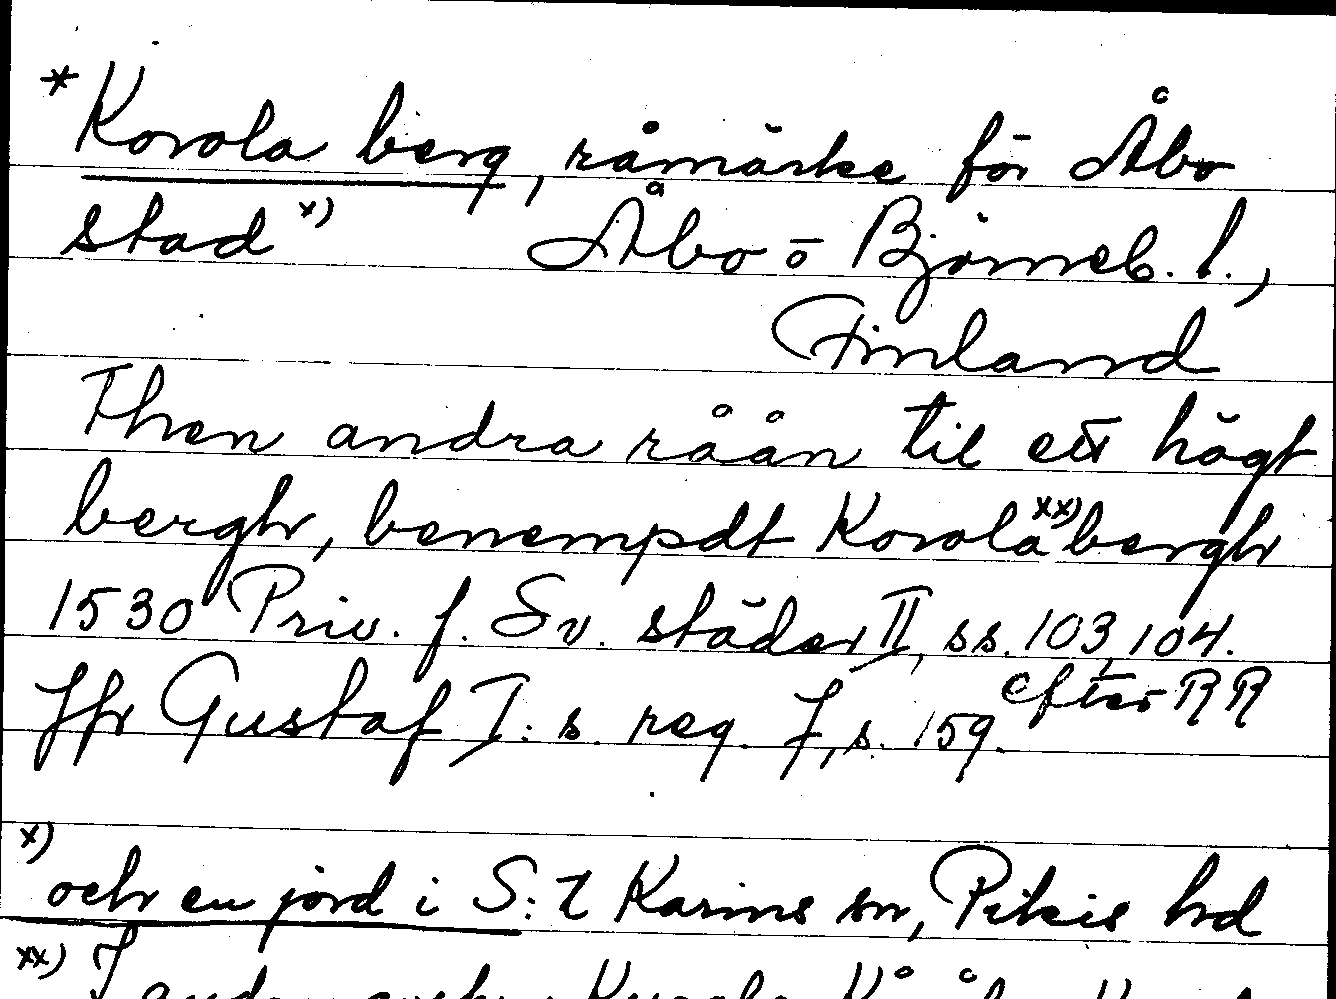 * Korola berg, råmärke för Åbo
stad x) Åbo o Björneb. l.,
Finland
Then andra råån til ett högt
bergh, benempdt Korola xx) bergh
1530 Priv. f. Sv. städer II, ss. 103, 104.
Jfr Gustaf I:s reg. 7, s. 159. efter RR
x) och en jord i S:t Karins sn, Pikis hd
xx) I